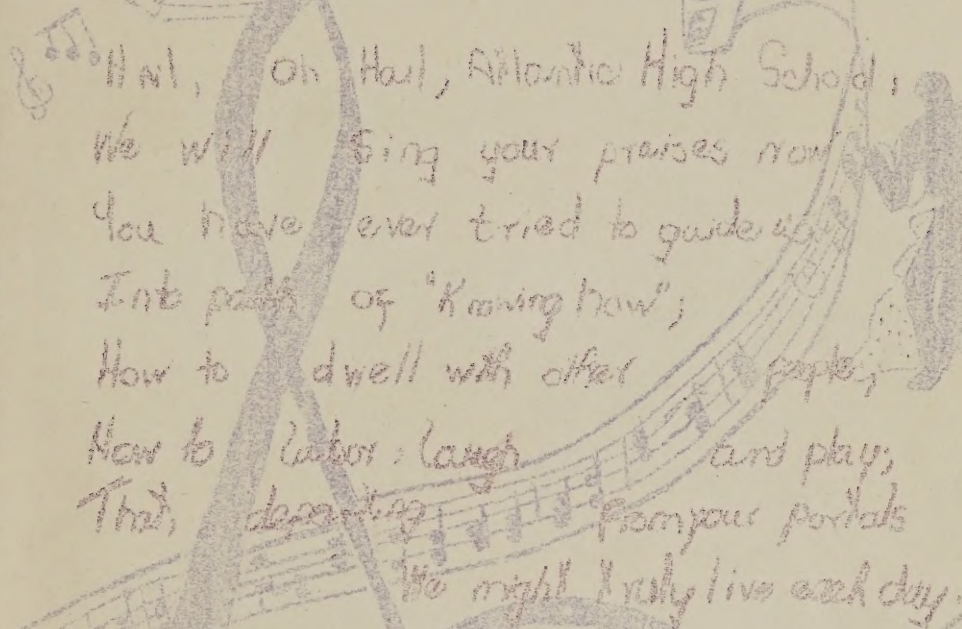 Hail, Oh Hail, Atlantic High School,
We will Sing your praises now
You have ever tried to guide us
Into path of "Knowing how";
How to dwell with other people,
How to labor, laugh and play,
That, departing from your portals
We might truly live each day.